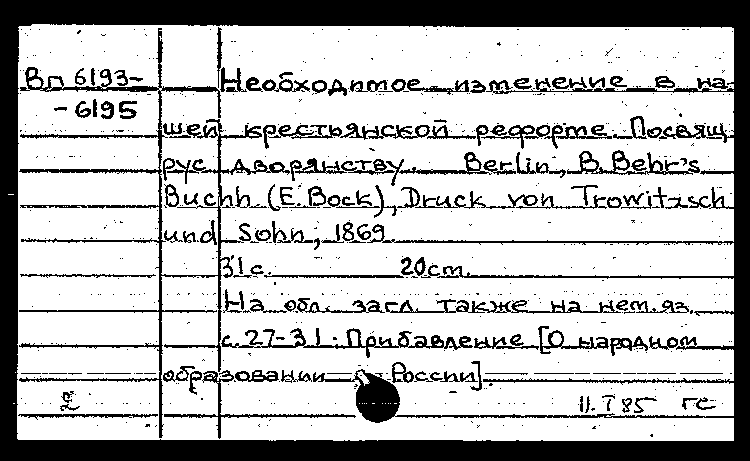 Вп 6193-
- 6195
Необходимое изменение в на-
шей крестьянской реформе. Посвящ.
рус. дворянству. Berlin, B. Behr's
Buchh (E. Bock), Druck von Trowitzsch
und Sohn, 1869.
31 с. 20 cm.
На обл. загл. также на нем. яз.
с. 27-31: Прибавление [О народном
образовании в России].
11.I 85 ГС